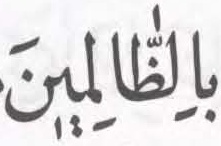 بِالظَّالِمِينَ